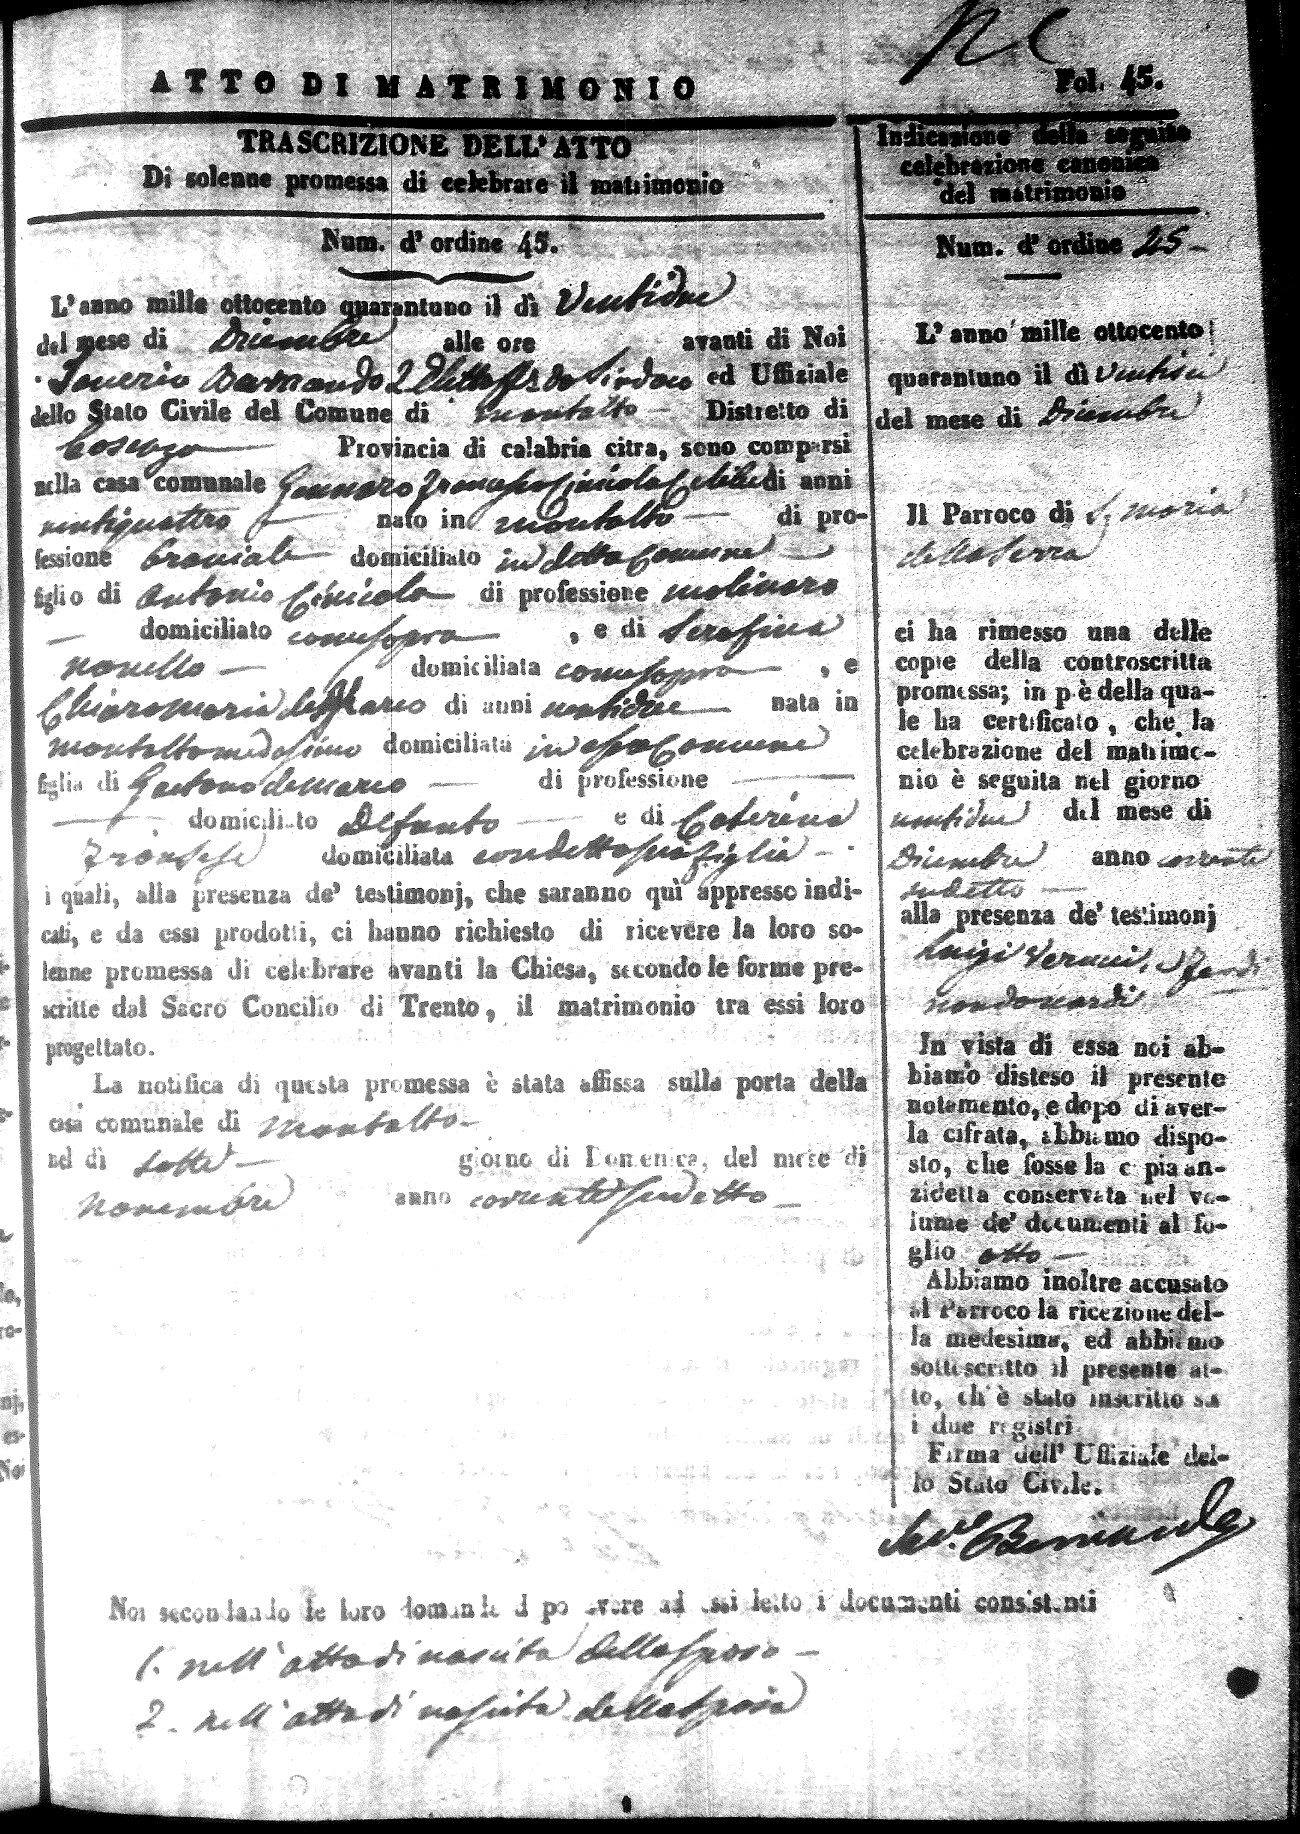 Fol. 45.
ATTO DI MATRIMONIO
TRASCRIZIONE DELL' ATTO
Di solenne promessa di celebrare il matrimonio
Num. d' ordine 45.
L' anno mille ottocento quarantuno il dì Ventidue
del mese di Dicembre alle ore avanti di Noi
Saverio Bernardo 2 Eletto Sindaco ed Uffiziale
dello Stato Civile del Comune di montalto Distretto di
Cosenza Provincia di calabria citra, sono comparsi
nella casa comunale Gennaro Francesco Cinicola Celibe di anni
ventiquattro nato in montalto di pro-
fessione domiciliato in detto Comune
figlio di Antonio Cinicola di professione molinaro
domiciliato come sopra , e di Serafina
novello domiciliata come sopra , e
Chiaromaria de Marco di anni ventidue nata in
montalto medesimo domiciliata in esso Comune
figlia di Gaetano de Marco di professione
domiciliato Defunto e di Caterina
domiciliata con detta sua figlia
i quali, alla presenza de' testimonj, che saranno quì appresso indi-
cati, e da essi prodotti, ci hanno richiesto di ricevere la loro so-
lenne promessa di celebrare avanti la Chiesa, secondo le forme pre-
scritte dal Sacro Concilio di Trento, il matrimonio tra essi loro
progettato.
La notifica di questa promessa è stata affissa sulla porta della
casa comunale di montalto
nel dì sette giorno di Domenica, del mese di
novembre anno corrente sudetto
Noi secondando le loro domande dopo avere ad essi letto i documenti consistenti
1. nell' atto di nascita dello sposo
2. nell' atto di nascita della sposa
Indicazione della seguita
celebrazione canonica
del matrimonio
Num. d' ordine 25
L' anno mille ottocento
quarantuno il dì Ventisei
del mese di Dicembre
Il Parroco di S. maria
della Serra
ci ha rimesso una delle
copie della controscritta
promessa; in piè della qua-
le ha certificato, che la
celebrazione del matrimo-
nio è seguita nel giorno
ventidue del mese di
Dicembre anno corrente
sudetto
alla presenza de' testimonj
Luigi e Ferdi
nando nardi
In vista di essa noi ab-
biamo disteso il presente
notamento, e dopo di aver-
la cifrata, abbiamo dispo-
sto, che fosse la copia an-
zidetta conservata nel vo-
lume de' documenti al fo-
glio otto
Abbiamo inoltre accusato
al Parroco la ricezione del-
la medesima, ed abbiamo
sottoscritto il presente at-
to, ch' è stato inscritto su
i due registri
Firma dell' Uffiziale del-
lo Stato Civile.